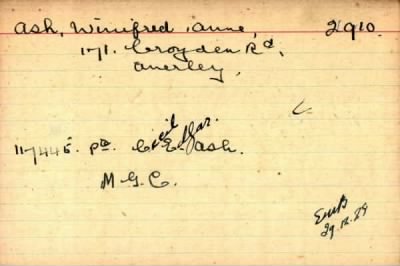 Ash, Winifred Anne, 2910.
171. Croyden Rd.,
Anerley,
117445. Pte Cecil Edgar Ash.
M.G.C.
29.12.29